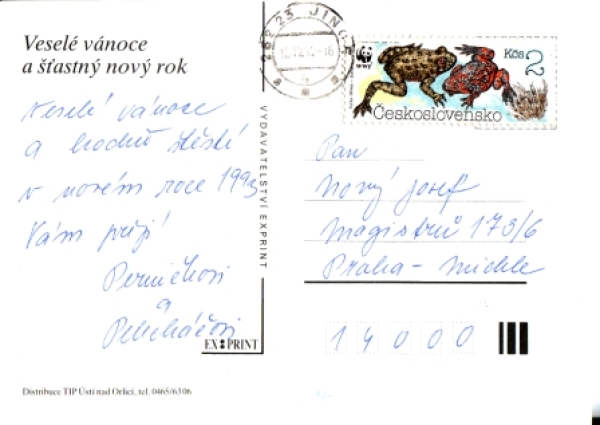 Veselé vánoce
a šťastný nový rok
Veselé vánoce
a hodně štěstí
v novém roce 1993
Vám přejí
a
EX PRINT
Distribuce TIP Ústí nad Orlicí, tel. 0465/6306
VYDAVATELSTVÍ EXPRINT
WWF
Kčs 2
Československo
Pan
Nový Josef
Magistrů 173/6
Praha - Michle
14000